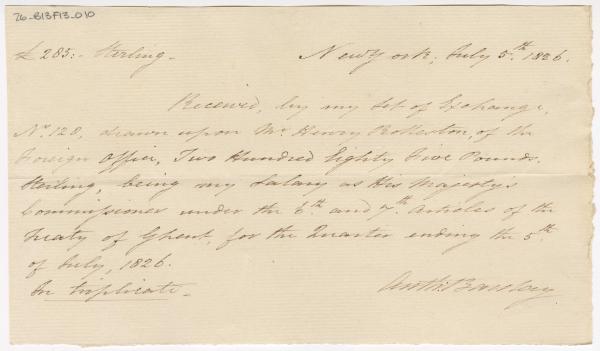 76-B13F13-010
£ 285:- Sterling-
New York, July 5.th 1826.
Received, by my Set of Exchange,
No. 128, drawn upon Mr. Henry Rolleston, of the
Foreign Office, Two Hundred Eighty Five Pounds.
Sterling, being my Salary as His Majesty's
Commissioner under the 6.th and 7.th Articles of the
Treaty of Ghent, for the Quarter ending the 5.th
of July, 1826.
In triplicate-
Anth: Barclay